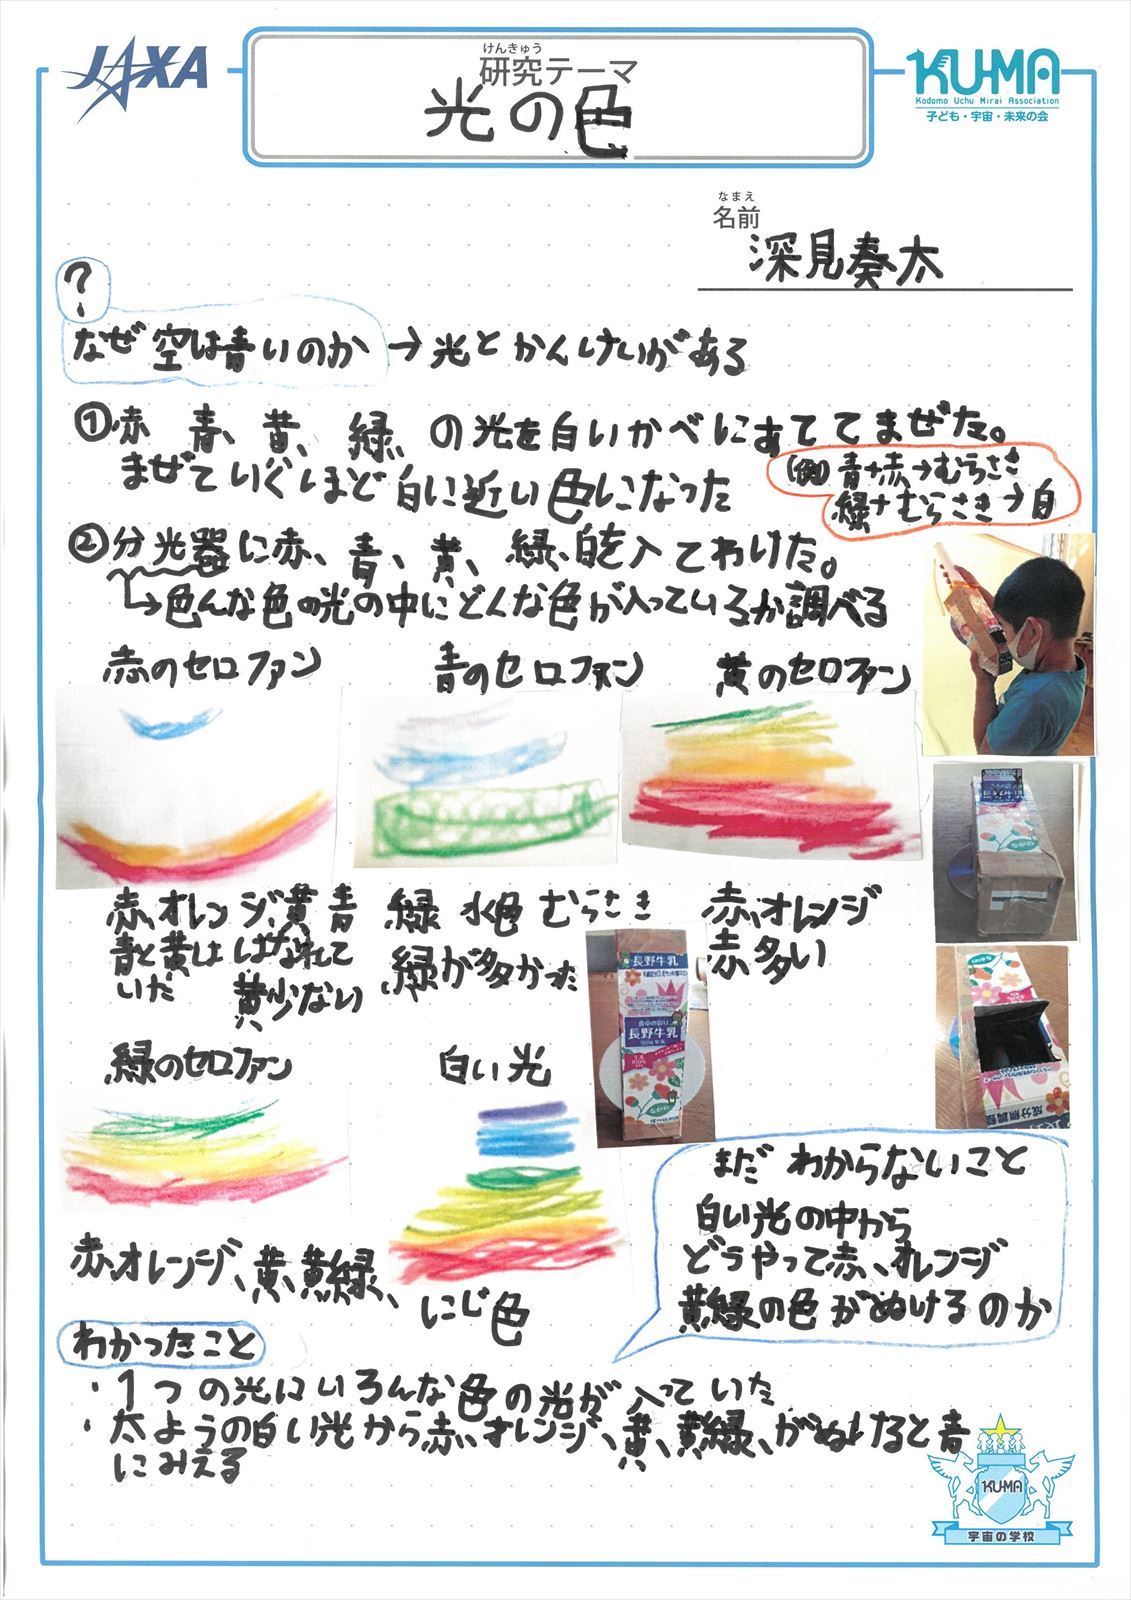 JAXA
けんきゅう
研究テーマ
光の色
KU-MA
Kodomo Uchu Mirai Association
子ども・宇宙・未来の会
なまえ
名前
深見奏太
?
なぜ空は青いのか→光とかんけいがある
①赤、青、黄、緑、の光を白いかべにあててまぜた。
まぜていくほど白に近い色になった
(例)青+赤→むらさき
緑+むらさき→白
②分光器に赤、青、黄、緑、白を入てわけた。
↳色んな色の光の中にどんな色が入っているか調べる
赤のセロファン
青のセロファン
黄のセロファン
赤、オレンジ、黄青
青と黄は はなれて
いた 黄少ない
緑 水色 むらさき
緑が多かった
赤、オレンジ
赤多い
長野牛乳
長野牛乳
成分無調整
緑のセロファン
白い光
赤、オレンジ、黄、黄緑、
にじ色
まだわからないこと
白い光の中から
どうやって赤、オレンジ
黄緑の色がぬけるのか
わかったこと
・1つの光にいろんな色の光が入っていた
・太ようの白い光から赤、オレンジ、黄、黄緑、がぬけると青
にみえる
KU-MA
宇宙の学校